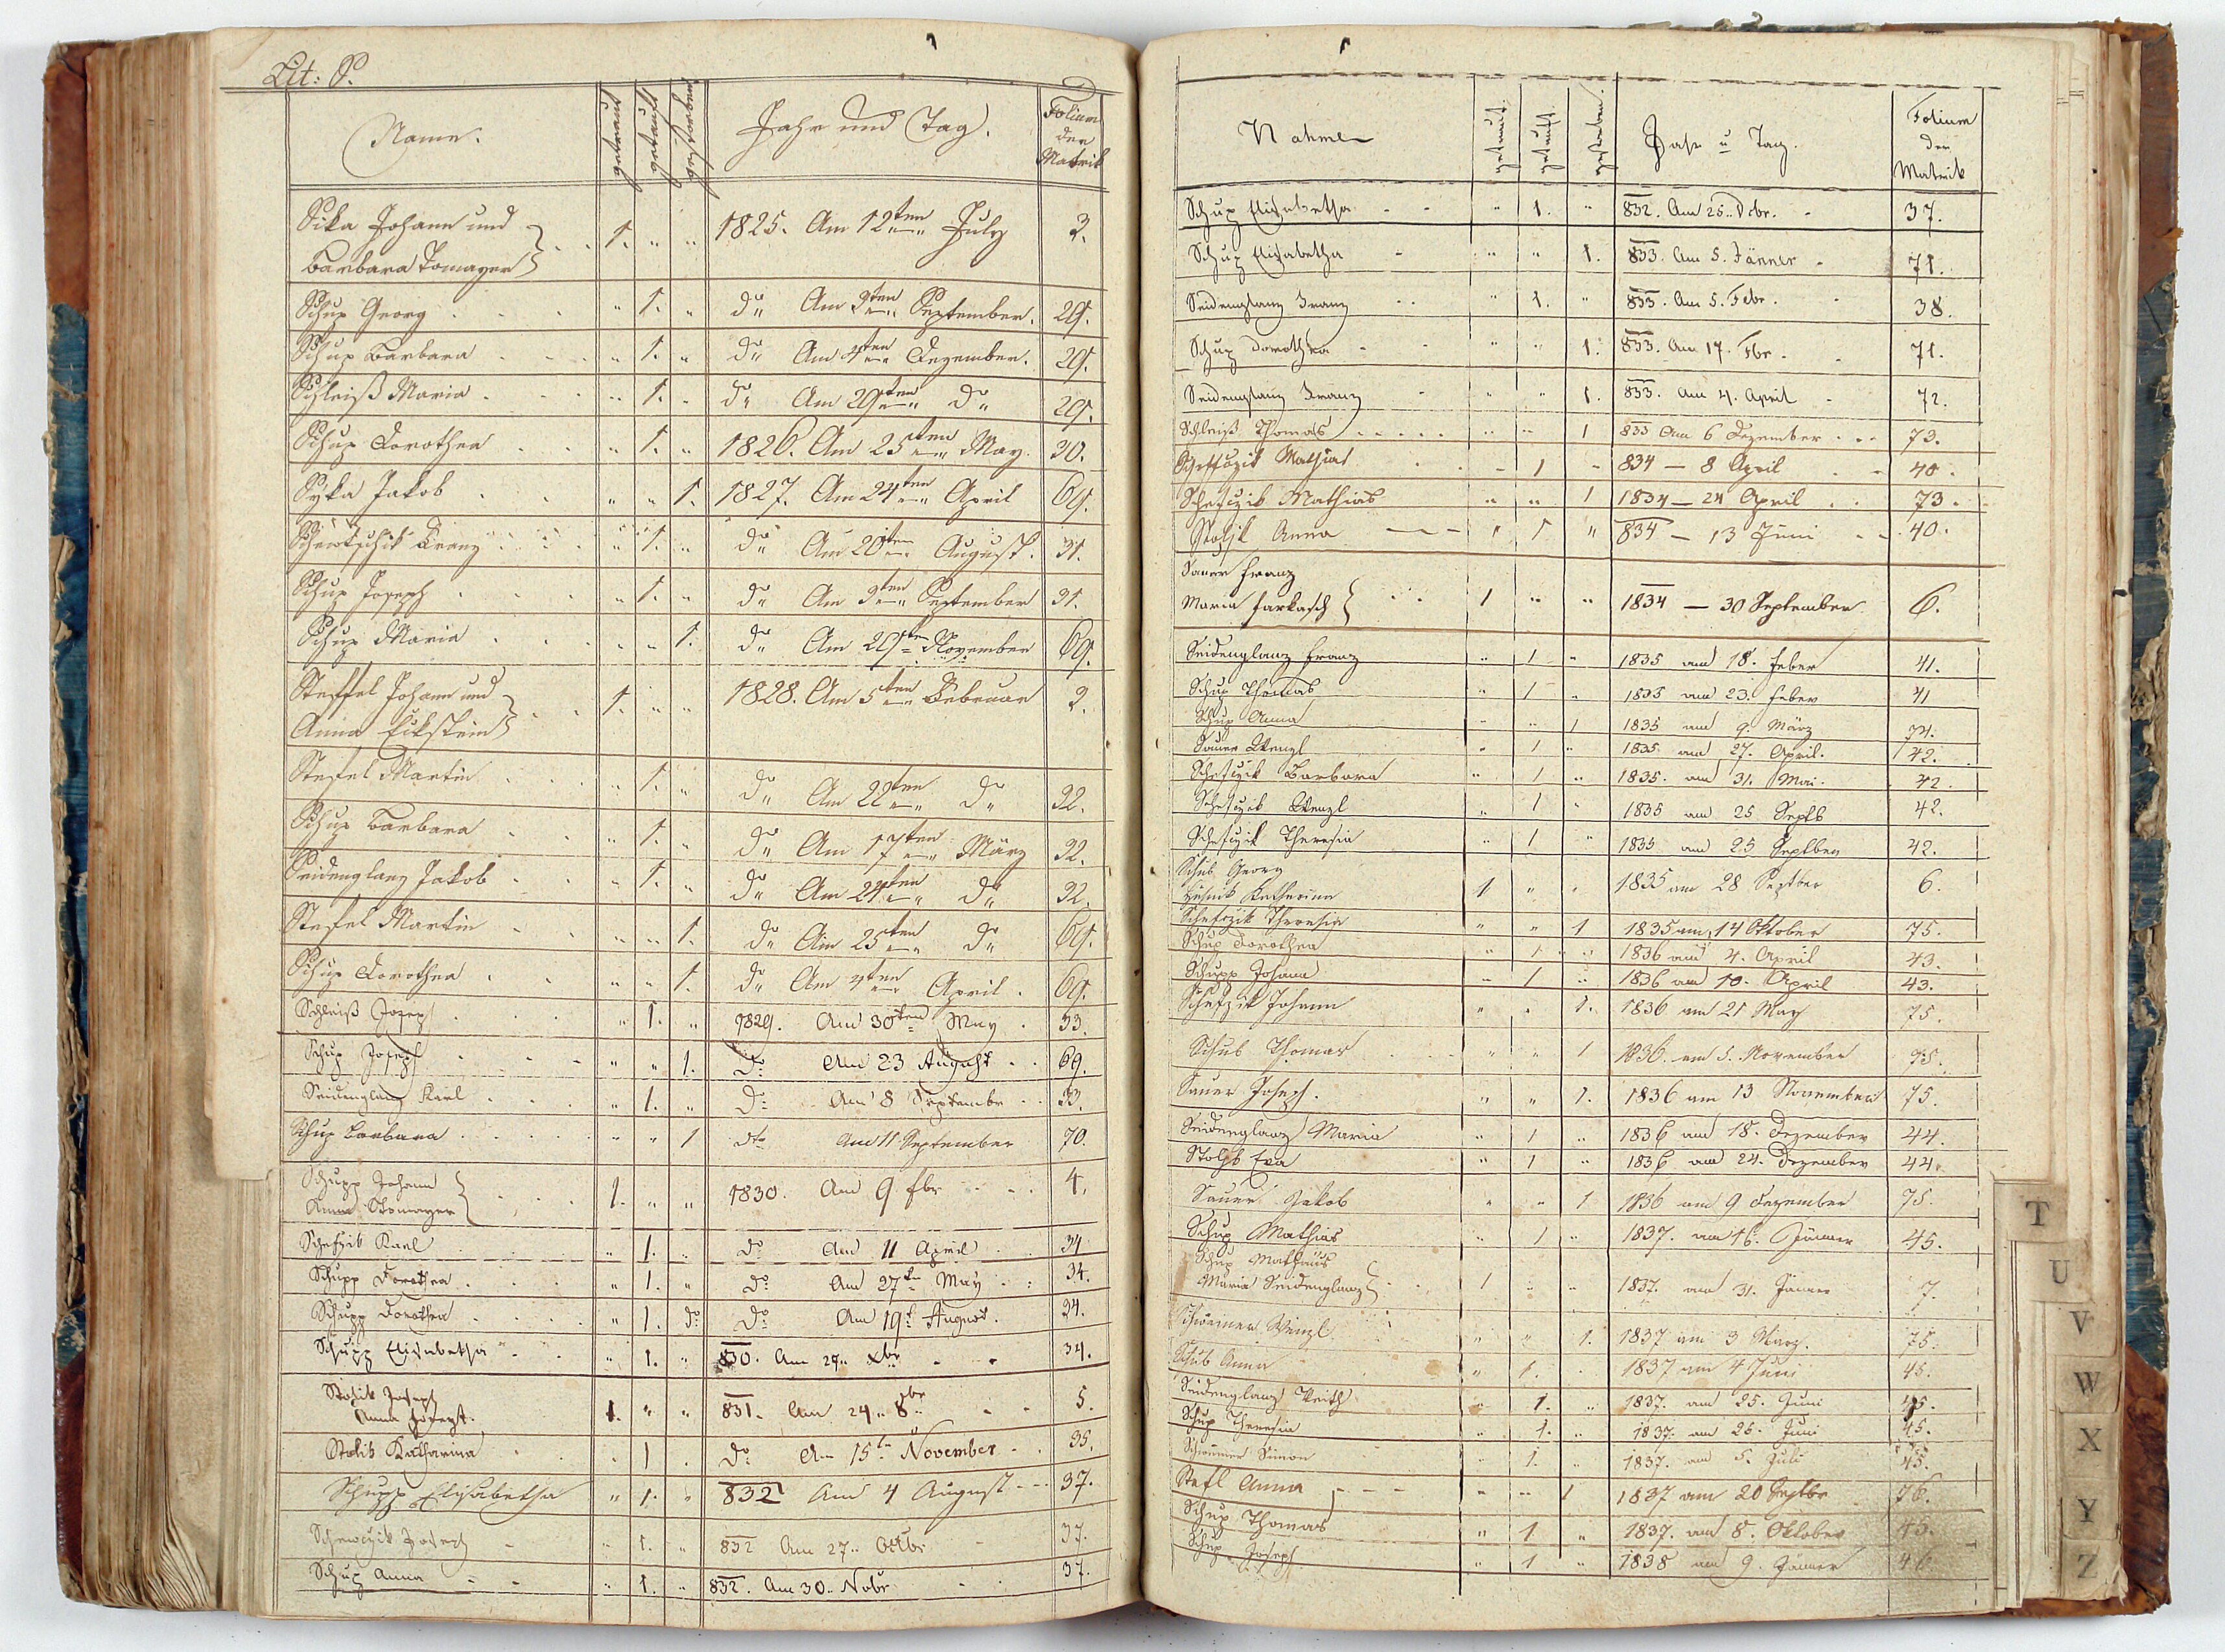 Lit: S.
Name. getraut getauft gestorben Jahr und Tag. Folium der Matrik
Sika Johann und
Barbara Tomayer } . . 1. " " 1825. Am 12ten July 2.
Schup Georg . . . " 1. " do Am 9ten September. 29.
Schup Barbara . . . " 1. " do Am 4ten Dezember. 29.
Schleiß Maria . . . " 1. " do Am 29ten do 29.
Schup Dorothea . . " 1. " 1826. Am 25ten May. 30.
Syka Jakob . . " " 1. 1827. Am 24ten April 69.
Franz . . " 1. " do Am 20ten August. 31.
Schup Joseph . . . " 1. " do Am 9ten September 31.
Schup Maria . . . " " 1. do Am 29ten November 69.
Steffel Johann und
Anna Eckstein } . . 1. " " 1828. Am 5ten Februar 2.
Stefel Martin . . . " 1. " do Am 22ten do 32.
Schup Barbara . . " 1. " do Am 17ten März 32.
Seidenglanz Jakob . . " 1. " do Am 24ten do 32.
Stefel Martin . . " " 1. do Am 25ten do 69.
Schup Dorothea . . " " 1. do Am 4ten April . 69.
Schleiß Joseph . . " 1. " 1829. Am 30ten May . 33.
Schup Joseph . . - " " 1. do Am 23 August . . 69.
Seidenglanz Karl . . " 1. " do Am 8 Septembr . . 33.
Schup Barbara . . . " " 1 dto Am 11 September 70.
Schupp Johann
Anna Stomayer } . . . 1. " " 1830. Am 9 fbr . . . 4.
Schefzik Karl . . " 1. " do Am 11 April . . 34
Schupp Dorothea . . . " 1. " do Am 27ten May . : 34.
Schupp Dorothea . . . " 1. do do Am 19t August . 34.
Schupp Elisabetha . . " 1. " 830. Am 29.. Xbr - - 34.
Stolik Joseph
Anna 1. " " 831. Am 24.. 8br - - 5.
Stolik Katharina . . 1 . do Am 15t November - . 35.
Schupp Elisabetha " 1. " 832 Am 4 August - - - 37.
Joseph - " 1. " 832 Am 27.. Octbr - 37.
Schup Anna - - " 1. " 832. Am 30.. Nobr . . 37.
Nahme getraut. getauft. gestorben. Jahr u Tag. Folium der Matrik
Schup Elisabetha - - " 1. " 832. Am 25.. Debr. - 37.
Schup Elisabetha - " " 1. 833. Am 5. Jänner - 71.
Seidenglanz Franz - - " 1. " 833. Am 5. Febr. - 38.
Schup Dorothea - - " " 1. 833. Am 17. Fbr. - - 71.
Seidenglanz Franz - " " 1. 833. Am 4. April - 72.
Schleiß Thomas . . . . . " " 1 833 Am 6 Dezember . - - 73.
Mathias . . - 1 - 834 - 8 April . - 40.
Schefzik Mathias " " 1 1834 - 24 April . . 73.
Stolik Anna - - - " 1 " 834 - 13 Juni - - 40.
Sauer Franz
Maria Farkasch } . . . 1 " " 1834 - 30 September 6.
Seidenglanz Franz " 1 " 1835 am 18. Feber 41.
Schup Thomas " 1 " 1835 am 23. Feber 41
Schup Anna " " 1 1835 am 9. März 74.
Sauer Wenzl " 1 " 1835 am 27. April. 42.
Schefzik Barbara " 1 " 1835. am 31. Mai. 42.
Schefzik Wenzl " 1 " 1835 am 25 Septb 42.
Schefzik Theresia " 1 " 1835 am 25 Septber 42.
Schub Georg
Katharina 1 " " 1835 am 28 Septber 6.
Schefzik Theresia " " 1 1835 am 14 Oktober 75.
Schup Dorothea " 1 " 1836 am 4. April 43.
Schupp Johann " 1 " 1836 am 10. April 43.
Schefzik Johann " " 1. 1836 am 21 May 75.
Schub Thomas . . " " 1 1836. am 5. November 75.
Sauer Joseph. " " 1. 1836 am 13 November 75.
Seidenglanz Maria " 1 " 1836 am 18. Dezember 44.
Stolik Eva " 1 " 1836 am 24. Dezember 44.
Sauer Jakob " " 1 1836 am 9 Dezember 75.
Schup Mathias " 1 " 1837. am 16. Jänner 45.
Schup Mathäus
Maria Seidenglanz } . . 1 " " 1837. am 31. Jänner 7.
Wenzl " " 1. 1837 am 3 März. 75.
Schub Anna " 1. . 1837 am 4 Juni 45.
Seidenglanz Veith " 1. " 1837. am 25. Juni 45.
Schup Theresia " 1. " 1837. am 26. Juni 45.
Simon 1. " 1837. am 5. Juli 45.
Stefl Anna - - - " " 1 1837 am 20 Septbr 76.
Schup Thomas " 1 " 1837. am 8. Oktober 45.
Schup Joseph " 1 " 1838 am 9. Jänner 46.
T
U
V
W
X
Y
Z